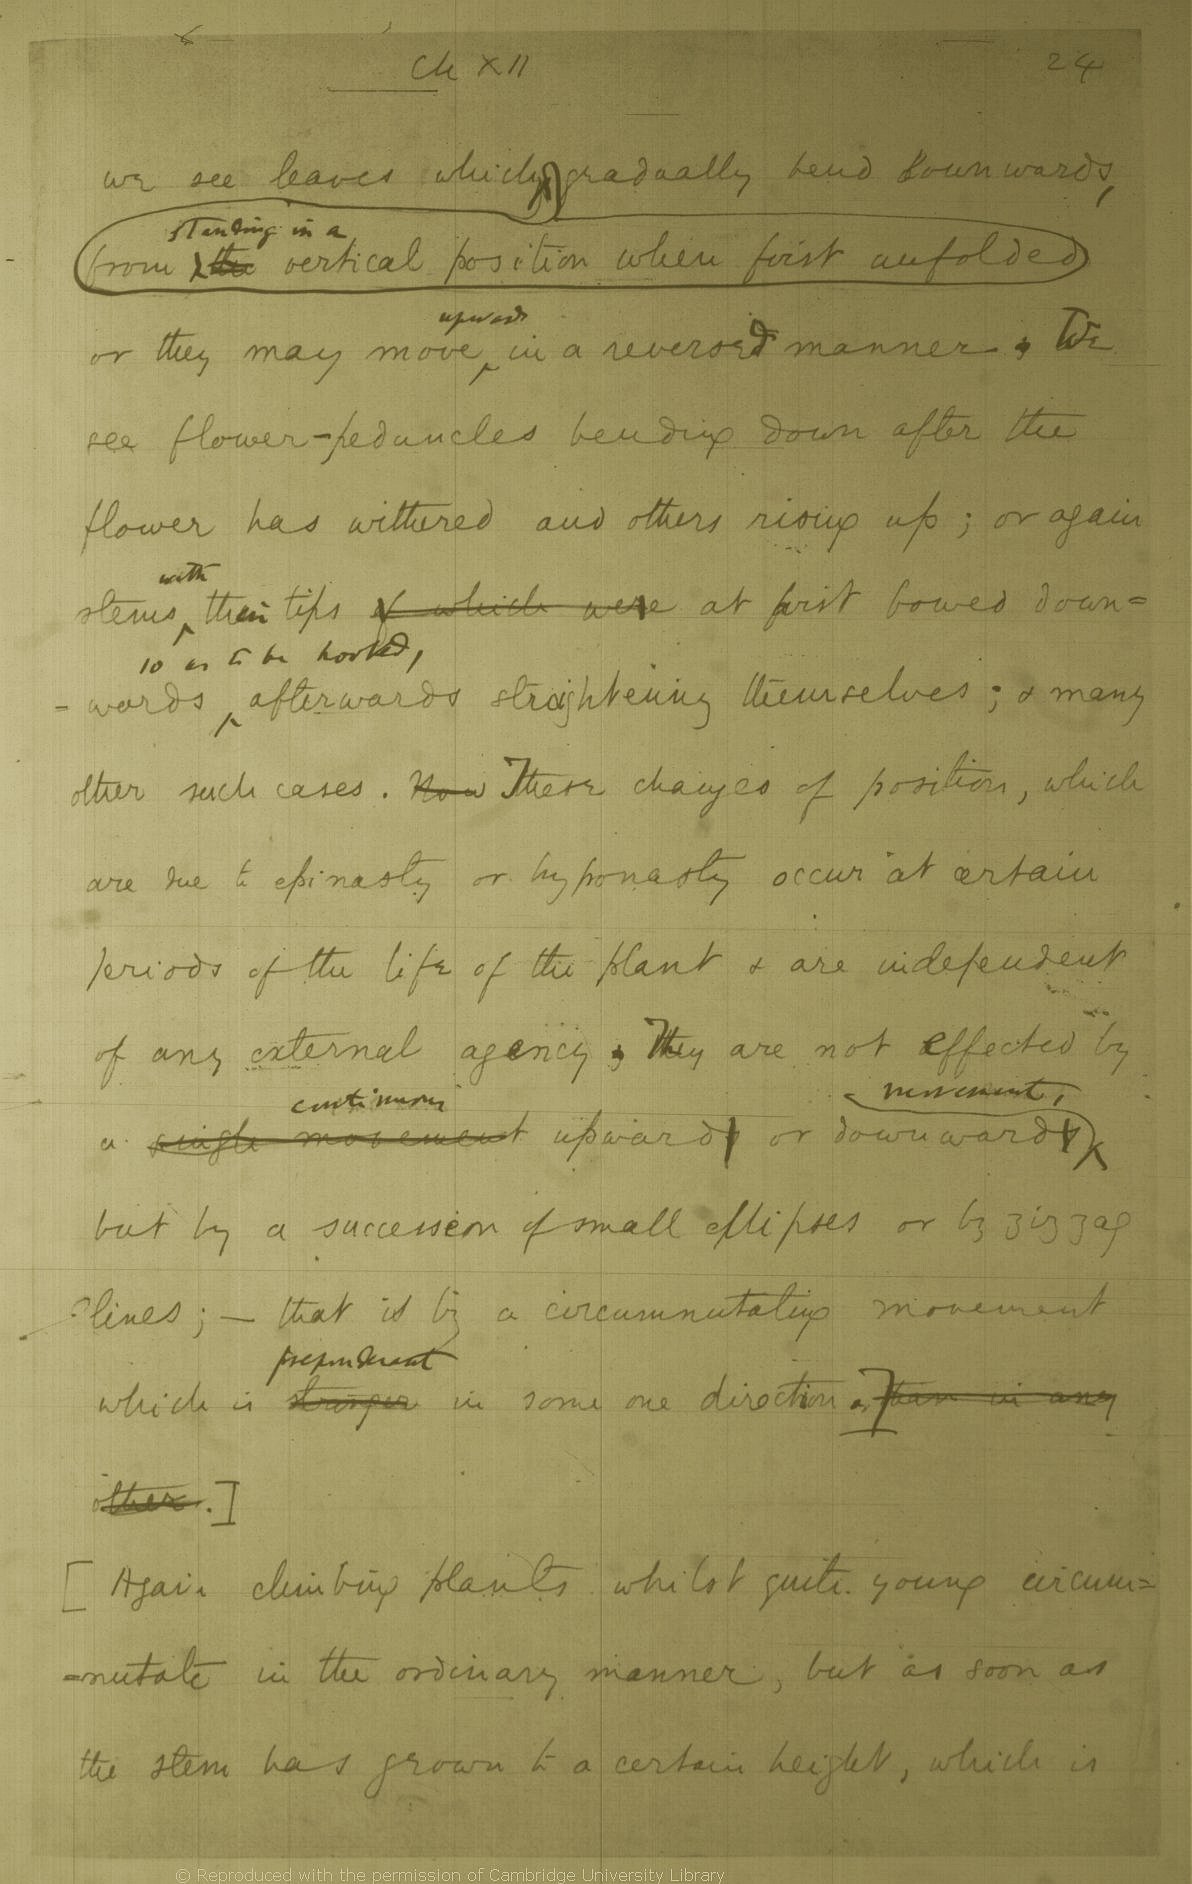 Ch XII
24
we see leaves which gradually bend downwards,
standing in a
from the vertical position when first unfolded
upwards
or they may move in a reversed manner. We
see flower-peduncles bending down after the
flower has withered and others rising up; or again
with
stems their tips of which were at first bowed down=
so as to be hooked,
=wards afterwards straightening themselves; & many
other such cases. Now These changes of position, which
are due to epinasty or hyponasty occur at certain
periods of the life of the plant & are independent
of any external agency, They are not effected by
continuous
movement,
a single movement upwards or downwards
but by a succession of small ellipses or by zigzag
lines; — that is by a circumnutating movement
preponderant
which is stronger in some one direction. than in any
other.]
[Again climbing plants whilst quite young circum=
=nutate in the ordinary manner, but as soon as
the stem has grown to a certain height, which is
© Reproduced with the permission of Cambridge University Library